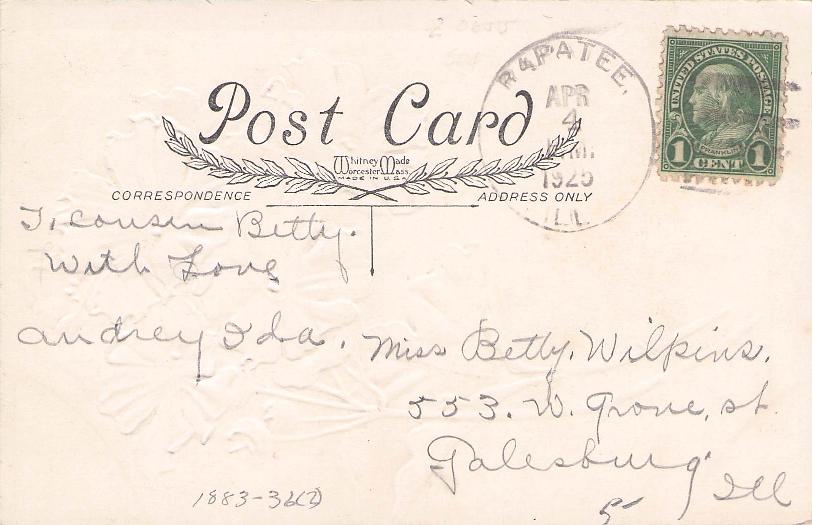 RAPATEE,
APR
4
1925
ILL.
UNITED STATES POSTAGE
FRANKLIN
1 CENT 1
Post Card
Whitney Made
Worcester Mass
MADE IN U.S.A
CORRESPONDENCE
ADDRESS ONLY
To cousin Betty.
With Love
Audrey Ida.
Miss Betty Wilkins.
553. W. Grove, st.
Galesburg
Ill
1883-36(2)